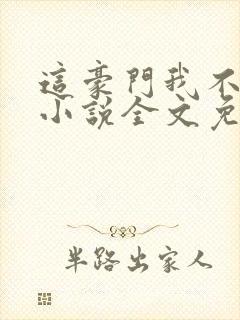 這豪門我不
小說全文免
半路出家人